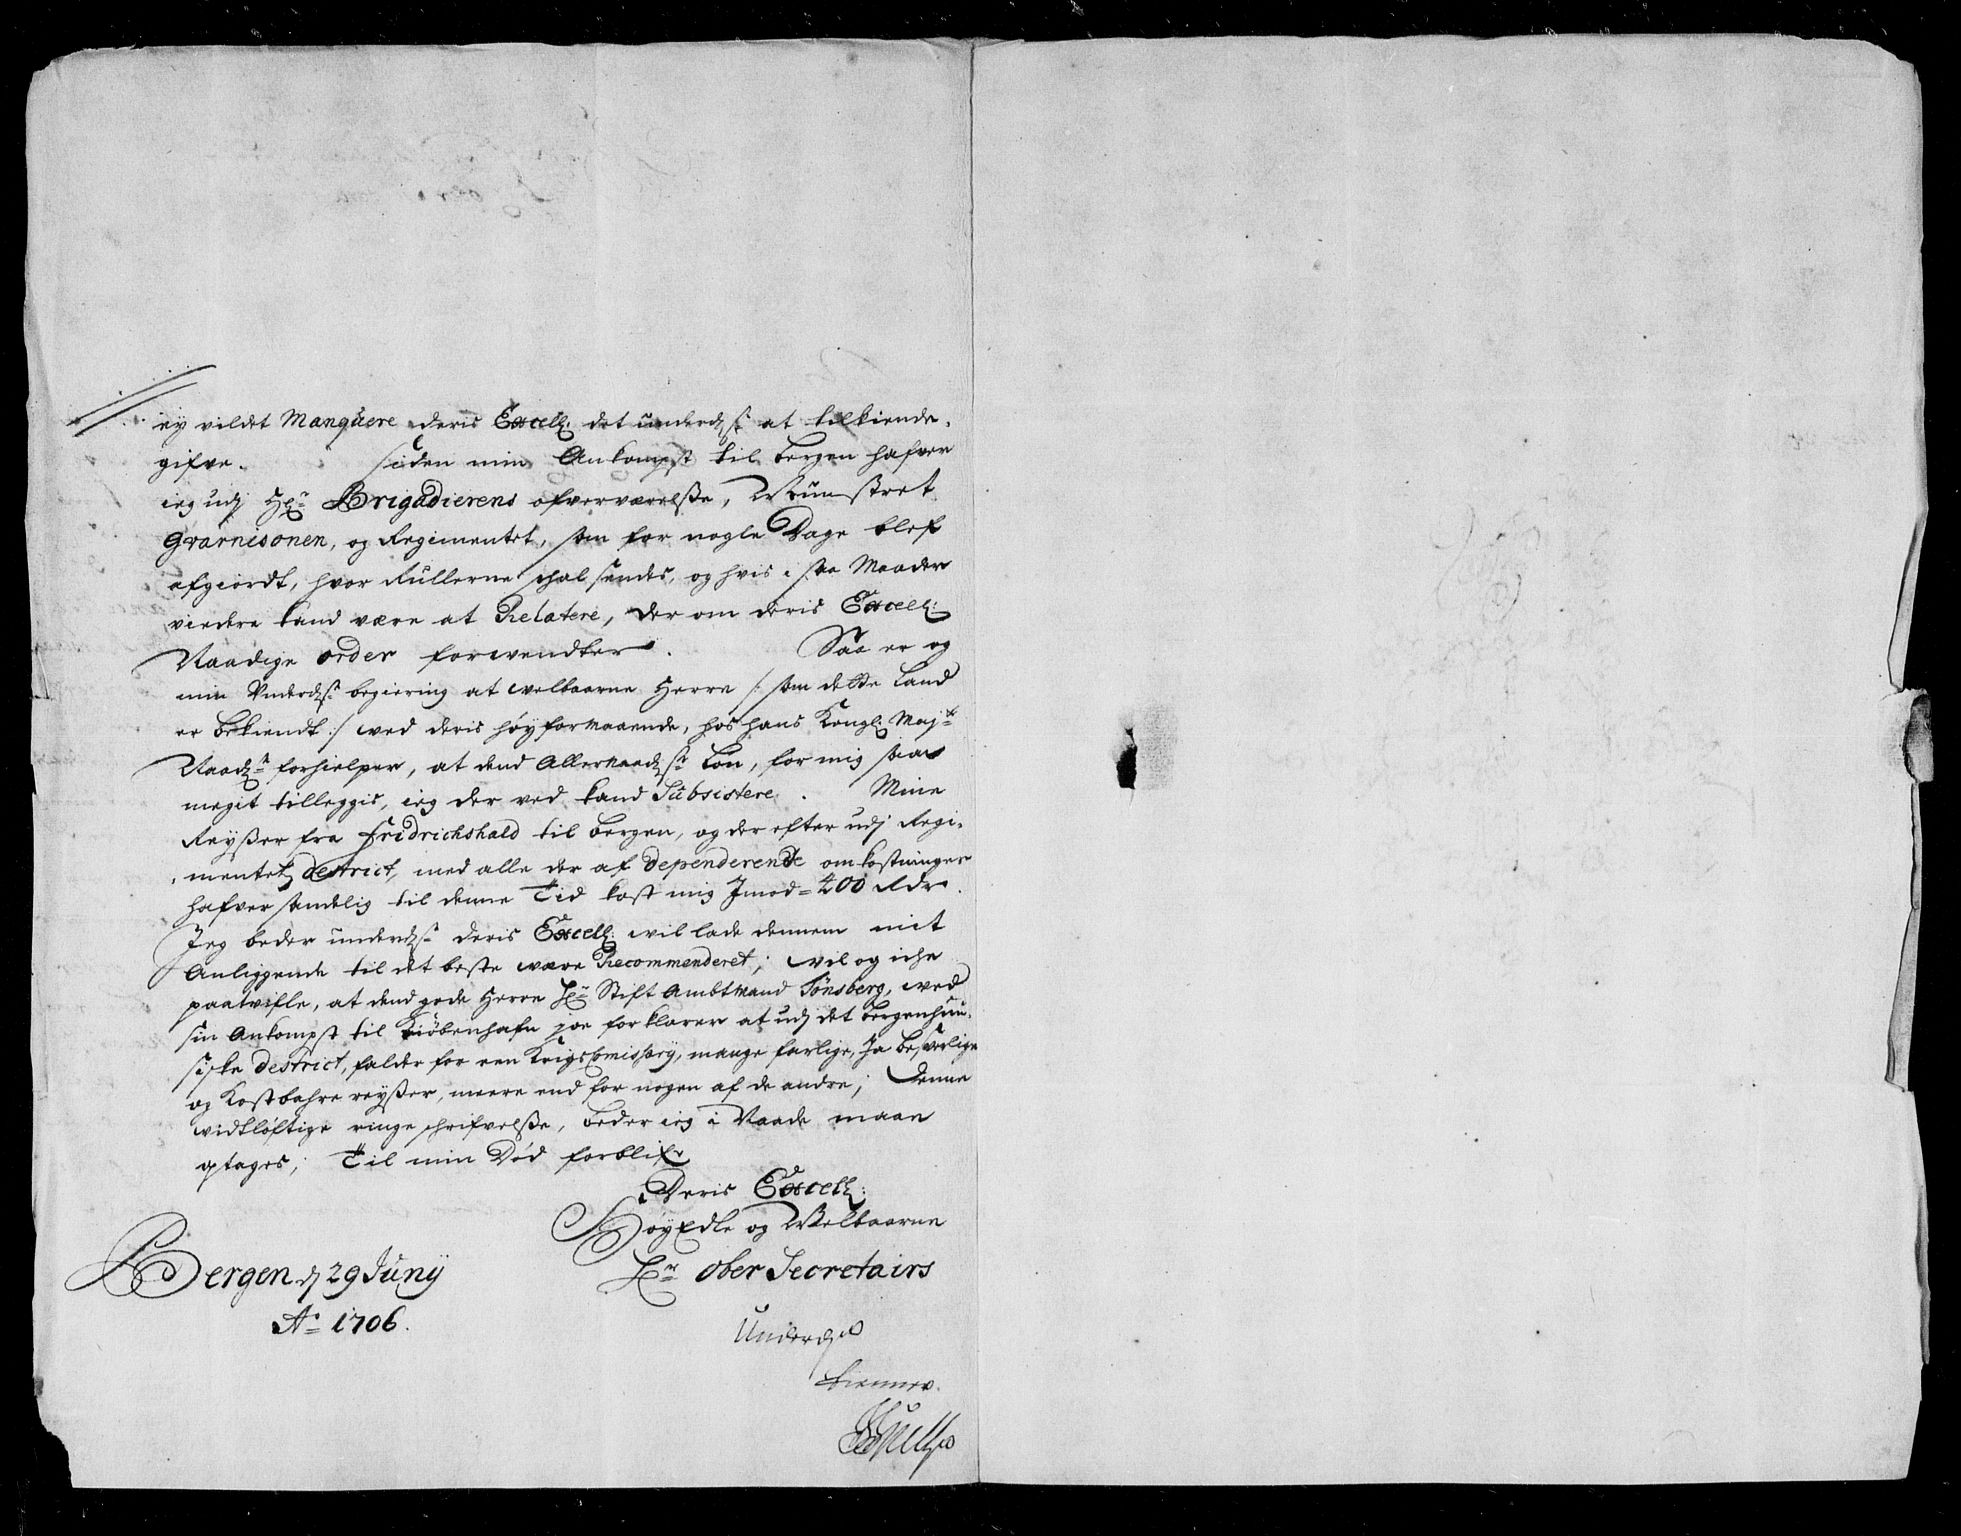 ey vildet Manquere deris Excell: det underdst at tilkiende-
gifve. siden min Ankompst til bergen hafver
ieg udj Hr Brigadierens ofverværelsse, Münstret
Gvarnisonen, og Regimentet, som for nogle Dage blef
afgiordt, hvor Rullerne schal sendes, og hvis i saa Maader
viedere kand være at Relatere, der om deris Excell:
Naadige order forwendter. Saa er og
min Underdst begiering at welbaarne Herre /: som dette Land
er bekiendt :/ wed deris høyformaaende, hos hans Kongl: Majts
Naade forhielper, at dend Allernaadst Løn, for mig saa
megit tilleggis, ieg der ved kand Subsistere. Mine
Reysser fra Fridrichshald til bergen, og der efter udj Regi-
mentetz destrict, med alle der af dependerende omkostninger
hafver sandelig til denne Tid kost mig Jmod = 400 Rdr.
Jeg beder underdst deris Excell: wil lade dennem mit
Anliggende til det beste være Recommenderet; wil og iche
paatvifle, at dend gode Herre Hr Stift Ambtmand Tönsberg, wed
sin Ankompst til Kiöbenhafn jo forklarer at udj det bergenhuu-
siske destrict, falder for een Krigs Comissary, mange farlige, Ja besverlige
og Kostbahre reysser, meere end for nogen af de andre; Denne
widtløftige ringe schrifvelsse, beder ieg i Naade maae
optages; Til min Død forblifr
Deris Excell:
HøyEdle og Welbaarne
Hr Ober Secretairs
Bergen d 29 Juny
Ao 1706.
Underds
tienner.